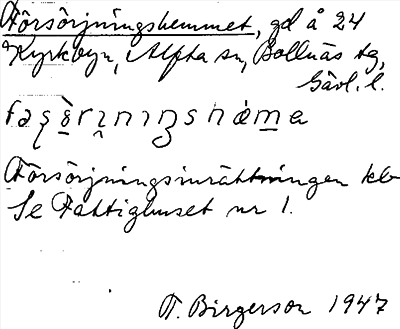 Försörjningshemmet, gd å 24
Kyrkbyn, Alfta sn, Bollnäs tg,
Gävl. l.
Försörjningsinrättningen kb
Se Fattighuset nr 1.
T. Birgerson 1947